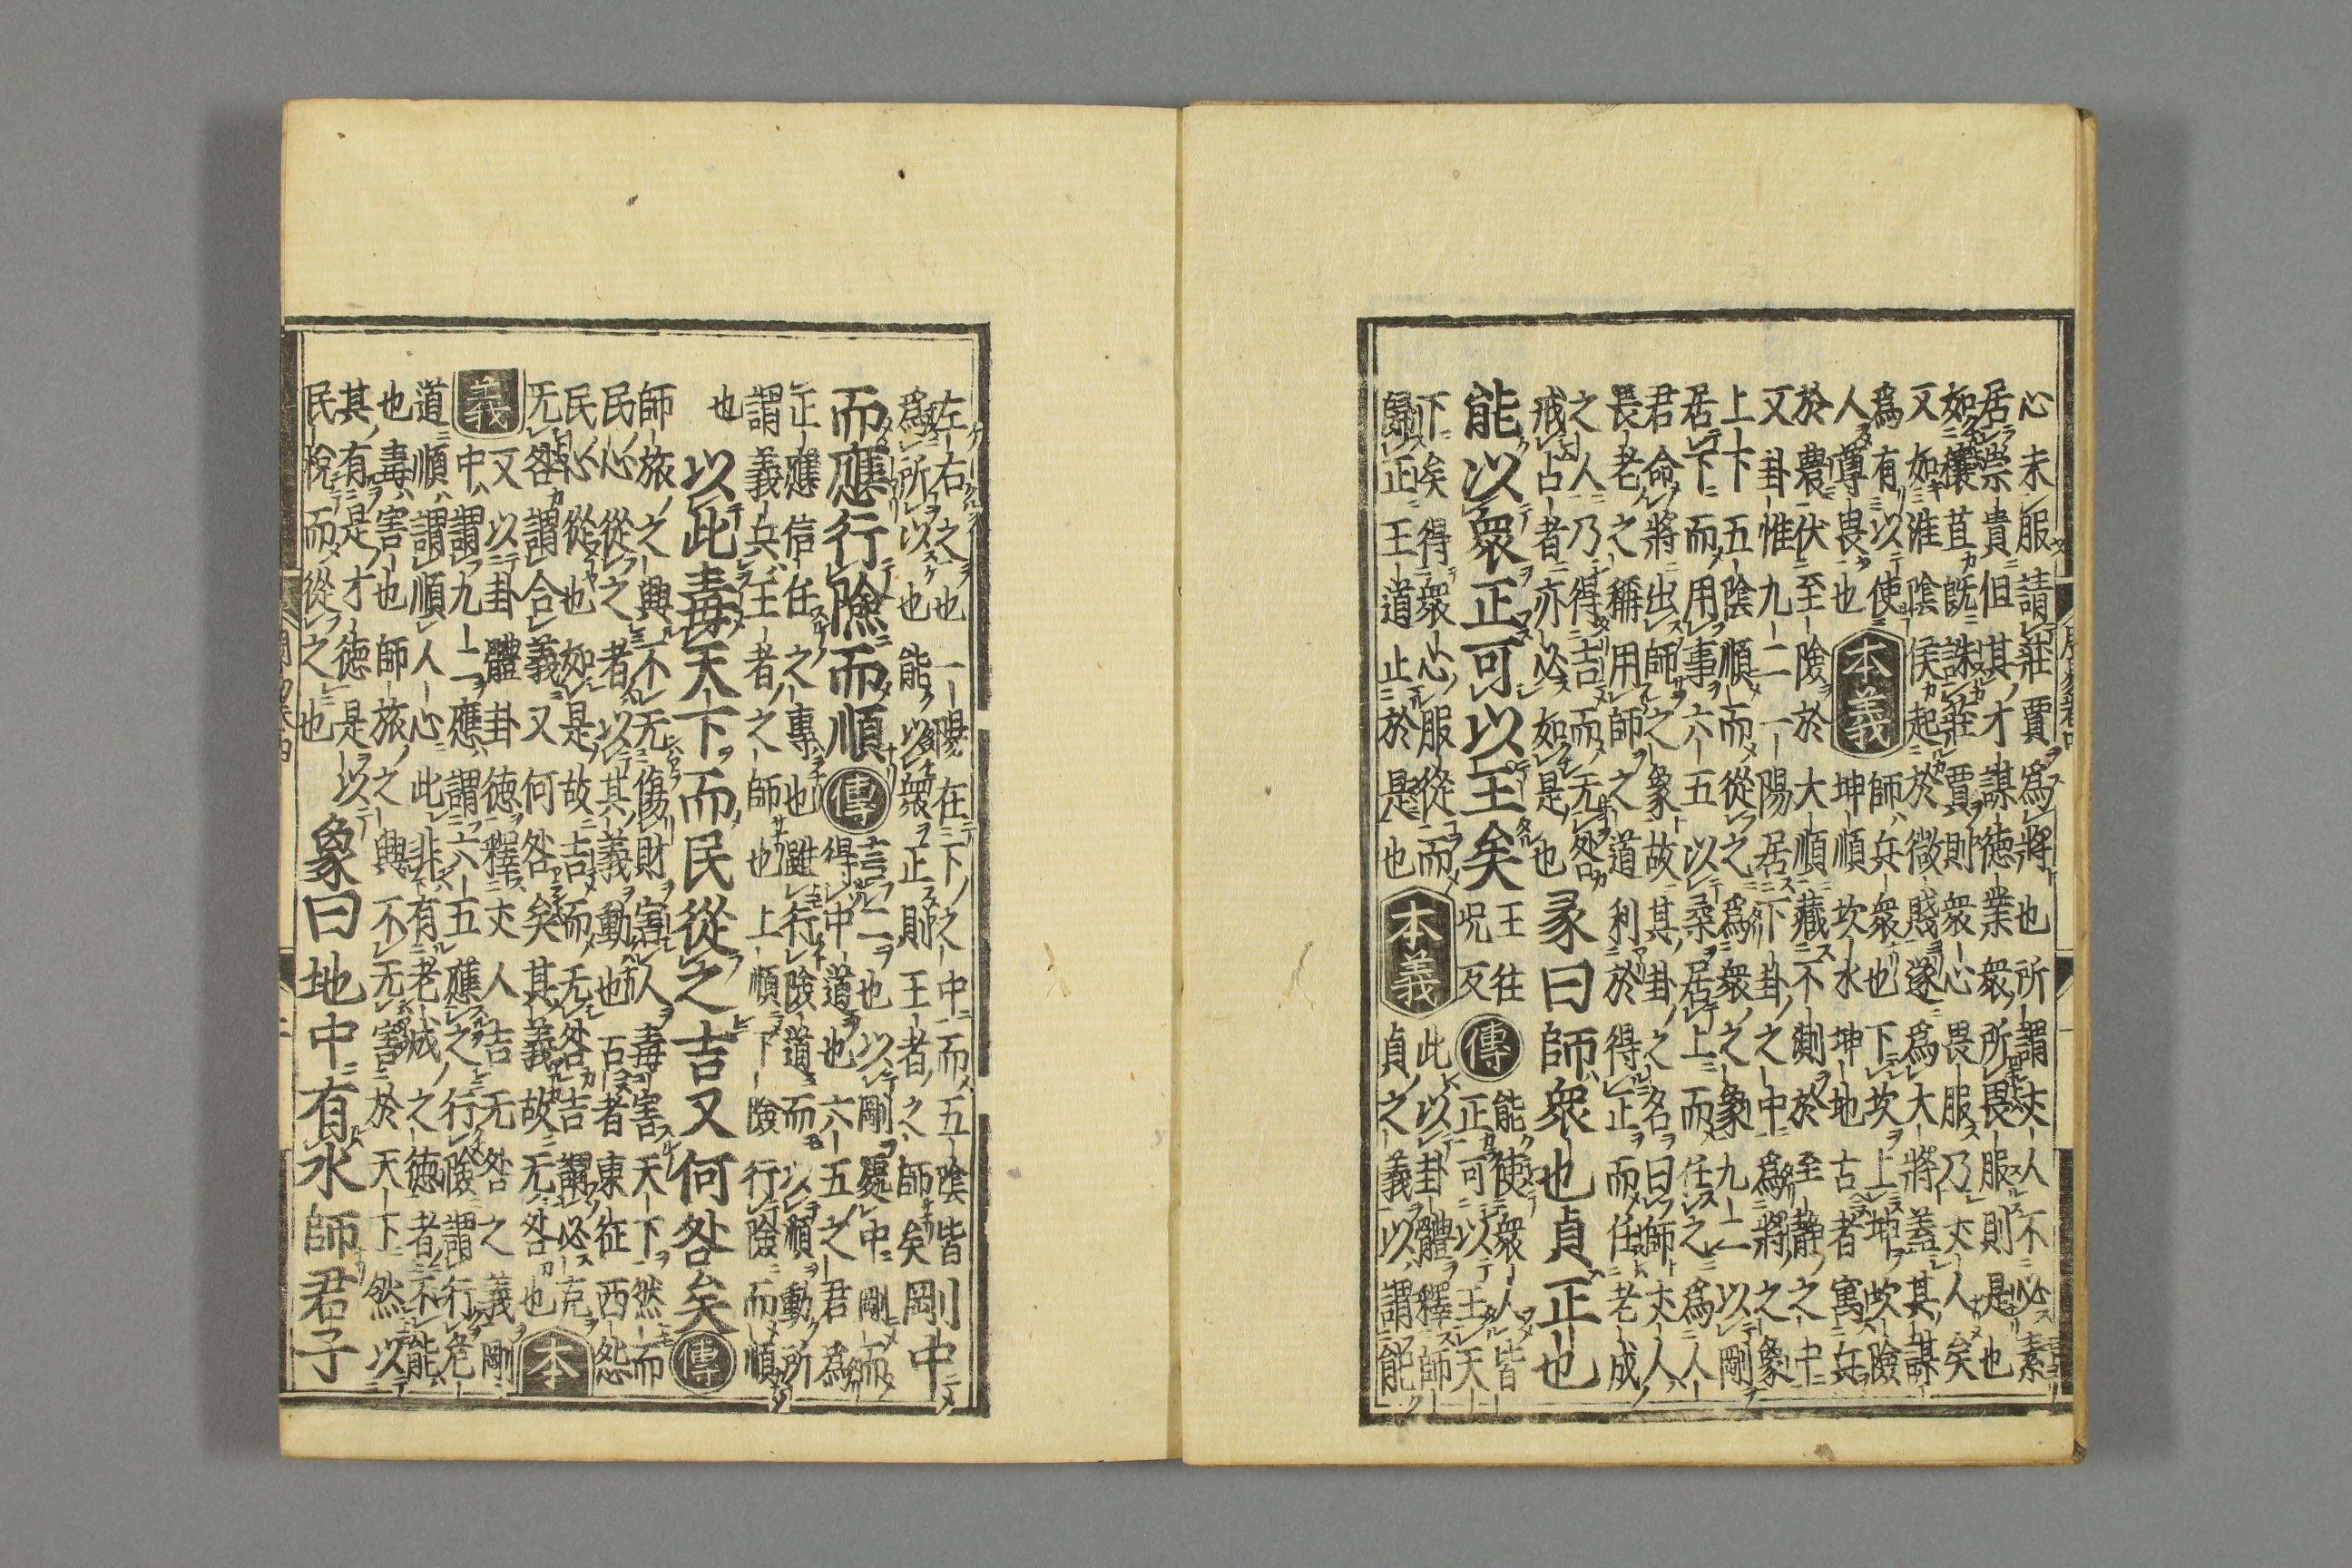 心未服請莊賈爲將也所謂丈人不必素
居崇貴但其才謀德業衆所畏服則是也
如穰苴既誅莊賈則衆心畏服乃丈人矣
又如淮陰侯起於微賤遂爲大將蓋其謀
爲有以使
人尊畏也
本義
師兵衆也下坎上坤坎險
坤順坎水坤地古者寓兵
於農伏至險於大順藏不測於至靜之中
又卦惟九二一陽居下卦之中爲將之象
上下五陰順而從之爲衆之象九二以剛
居下而用事六五以柔居上而任之爲人
君命將出師之象故其卦之名曰師丈人
長老之稱用師之道利於得正而任老成
之人乃得吉而无咎
戒占者亦必如是也
彖曰師衆也貞正也
能以衆正可以王矣
王往
况反
傳
能使衆人皆
正可以王天
下矣得衆心服從而
歸正王道止於是也
本義
此以卦體釋師
貞之義以謂能
左右之也一陽在下之中而五陰皆
爲所以也能以衆正則王者之師矣
剛中
而應行險而順
傳
言二也以剛處中剛而
得中道也六五之君爲
正應信任之專也雖行險道而以順動所
謂義兵王者之師也上順下險行險而順
也
以此毒天下而民從之吉又何咎矣
傳
師旅之興不无傷財害人毒害天下然而
民心從之者以其義動也古者東征西怨
民心從也如是故吉而无咎吉謂必克
无咎謂合義又何咎矣其義故无咎也
本
義
又以卦體卦德釋丈人吉无咎之義剛
中謂九二應謂六五應之行險謂行危
道順謂順人心此非有老成之德者不能
也毒害也師旅之興不无害於天下然以
其有是才德是以
民悅而從之也
象曰地中有水師君子